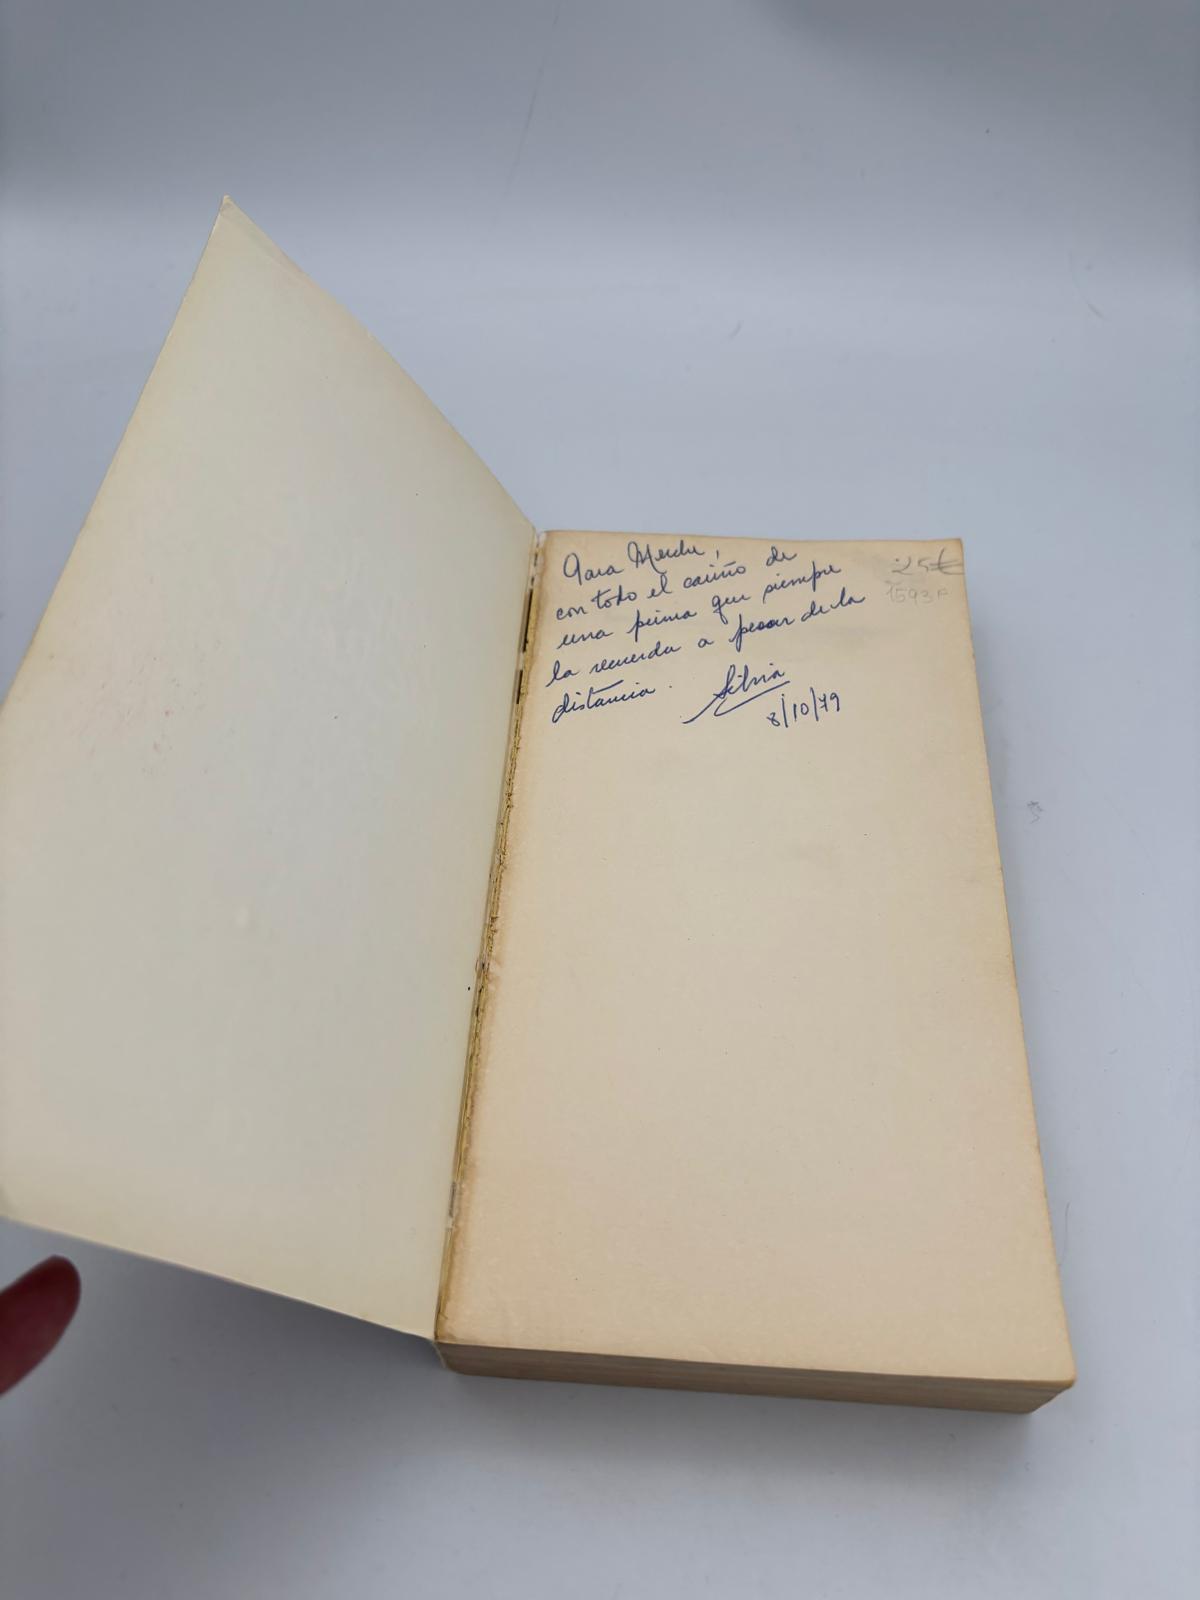 Para Merche,
con todo el cariño de
una prima que siempre
la recuerda a pesar de la
distancia.
Silvia
8/10/79
25€
1593F